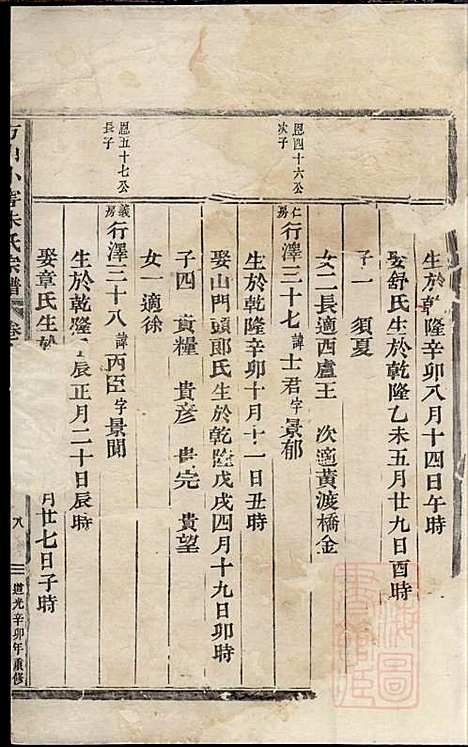 生於乾隆辛卯八月十四日午時
娶舒氏生於乾隆乙未五月廿九日酉時
子一 須夏
女二長適西盧王 次適黃渡橋金
恩四十六公
次子
仁房行澤三十七諱士君字景郁
生於乾隆辛卯十月十一日丑時
娶山門頭郎氏生於乾隆戊戌四月十九日卯時
子四 貴糧 貴彥 貴完 貴望
女一適徐
恩五十七公
長子
義房行澤三十八諱丙臣字景聞
生於乾隆辰正月二十日辰時
娶章氏生於 月廿七日子時
小 朱氏宗譜 卷
八
道光辛卯年重修